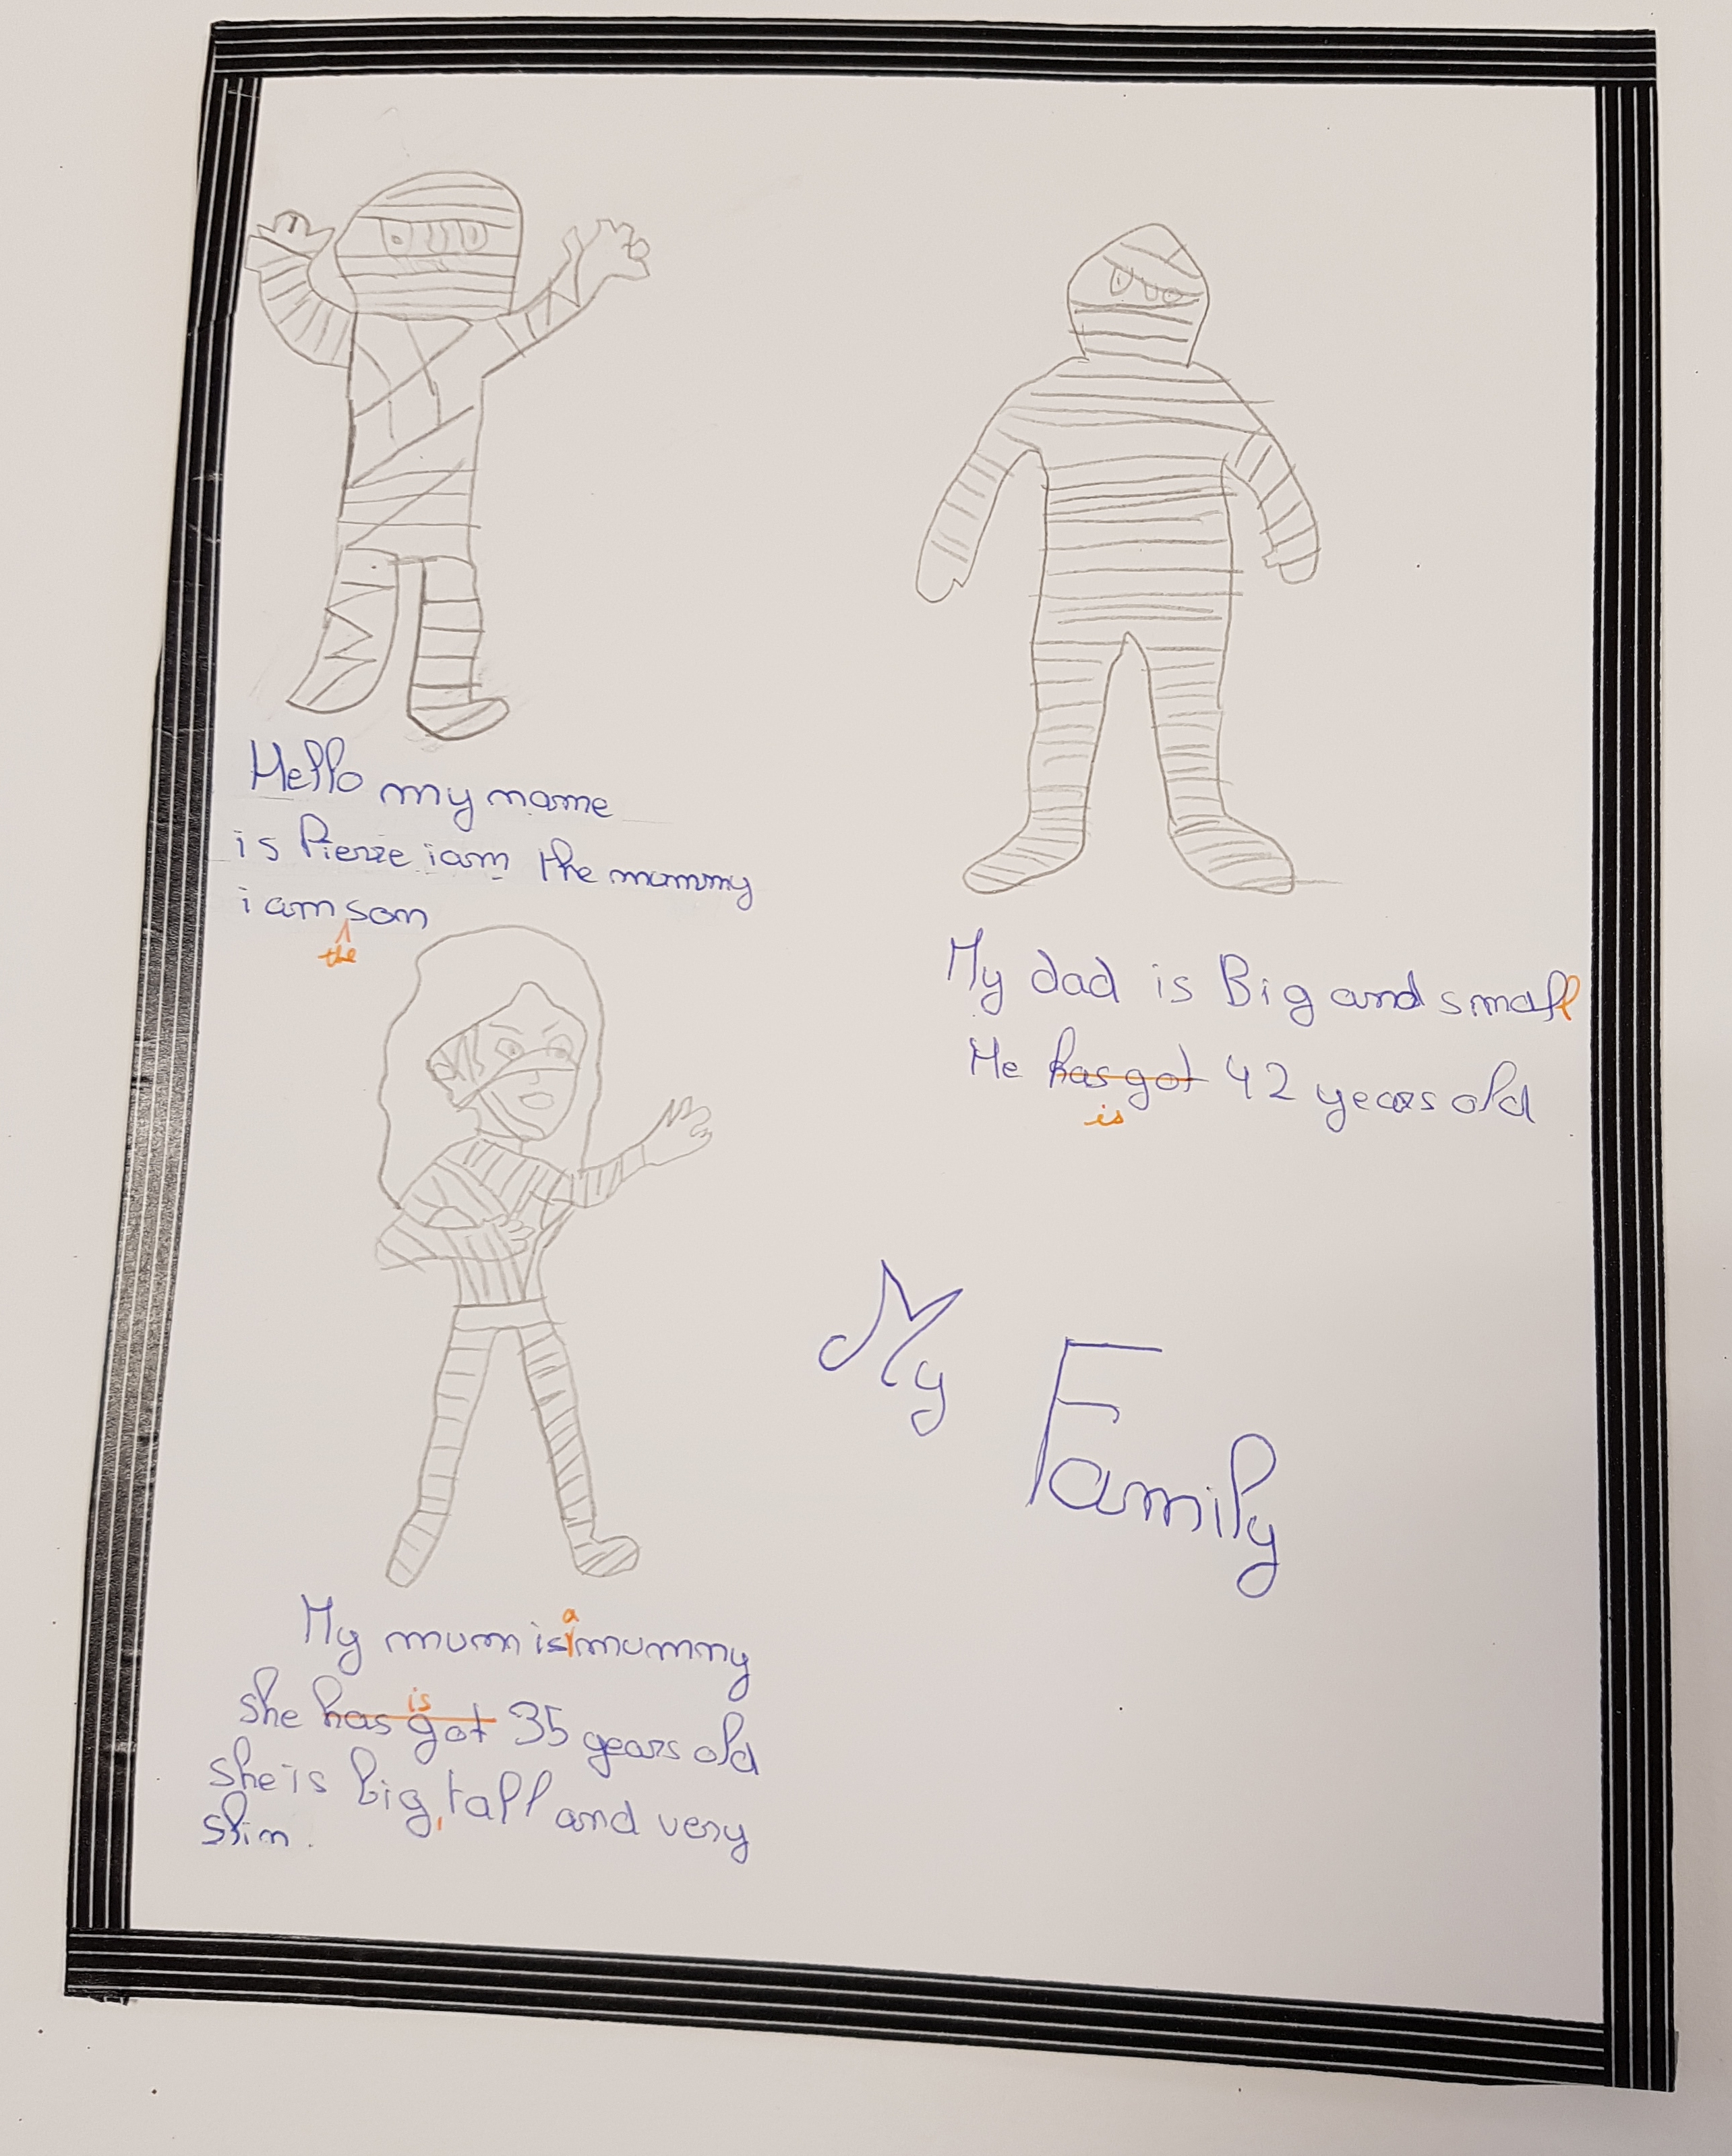 Hello my name
is Pierre iam the mummy
i am son
the
My dad is Big and small
He has got 42 years old
is
My Family
a
My mum is mummy
is
she has got 35 years old
she is big, tall and very
slim.